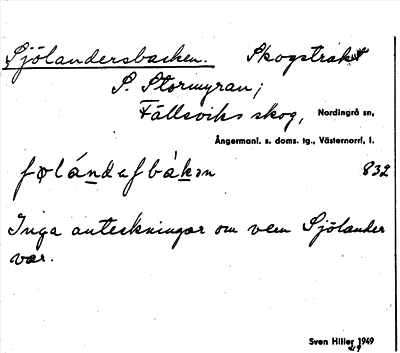 Sjölandersbacken. Skogstrakt
S. Stormyran;
Fällsviks skog, Nordingrå sn,
Ångermanl. s. doms. tg., Västernorrl, l.
ʃølánda ʃbák̠ən 832
Inga anteckningar om vem Sjölander
var.
Sven Hiller 1949